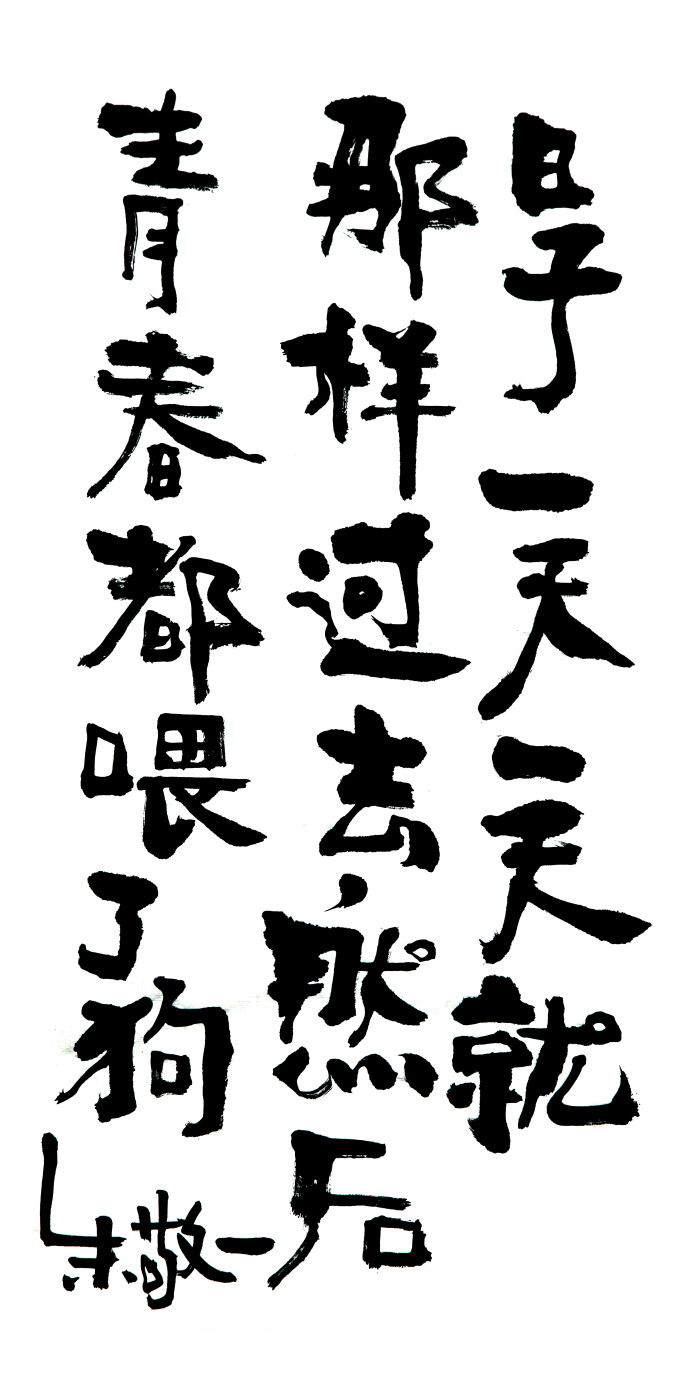 日子一天一天就
那样过去,然后
青春都喂了狗
朱敬一